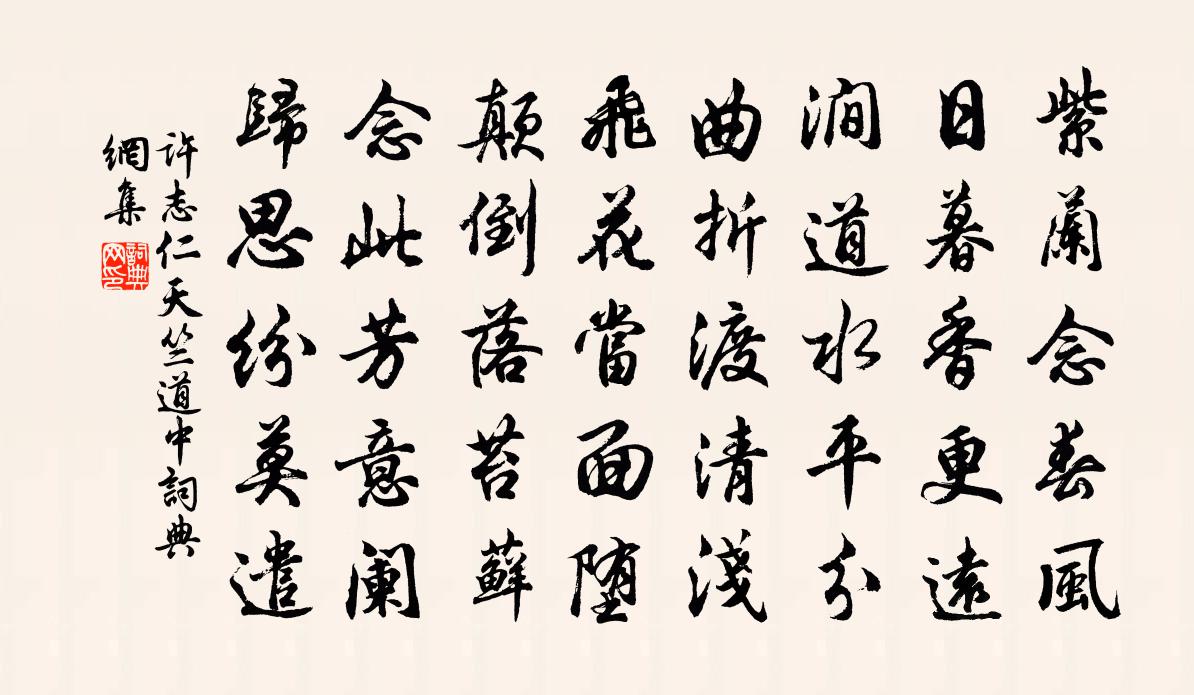 紫蘭念春風
日暮香更遠
澗道水平分
曲折渡清淺
飛花當面墮
顛倒落苔蘚
念此芳意闌
歸思紛莫遣
許志仁天竺道中詞典
網集
詞典網印